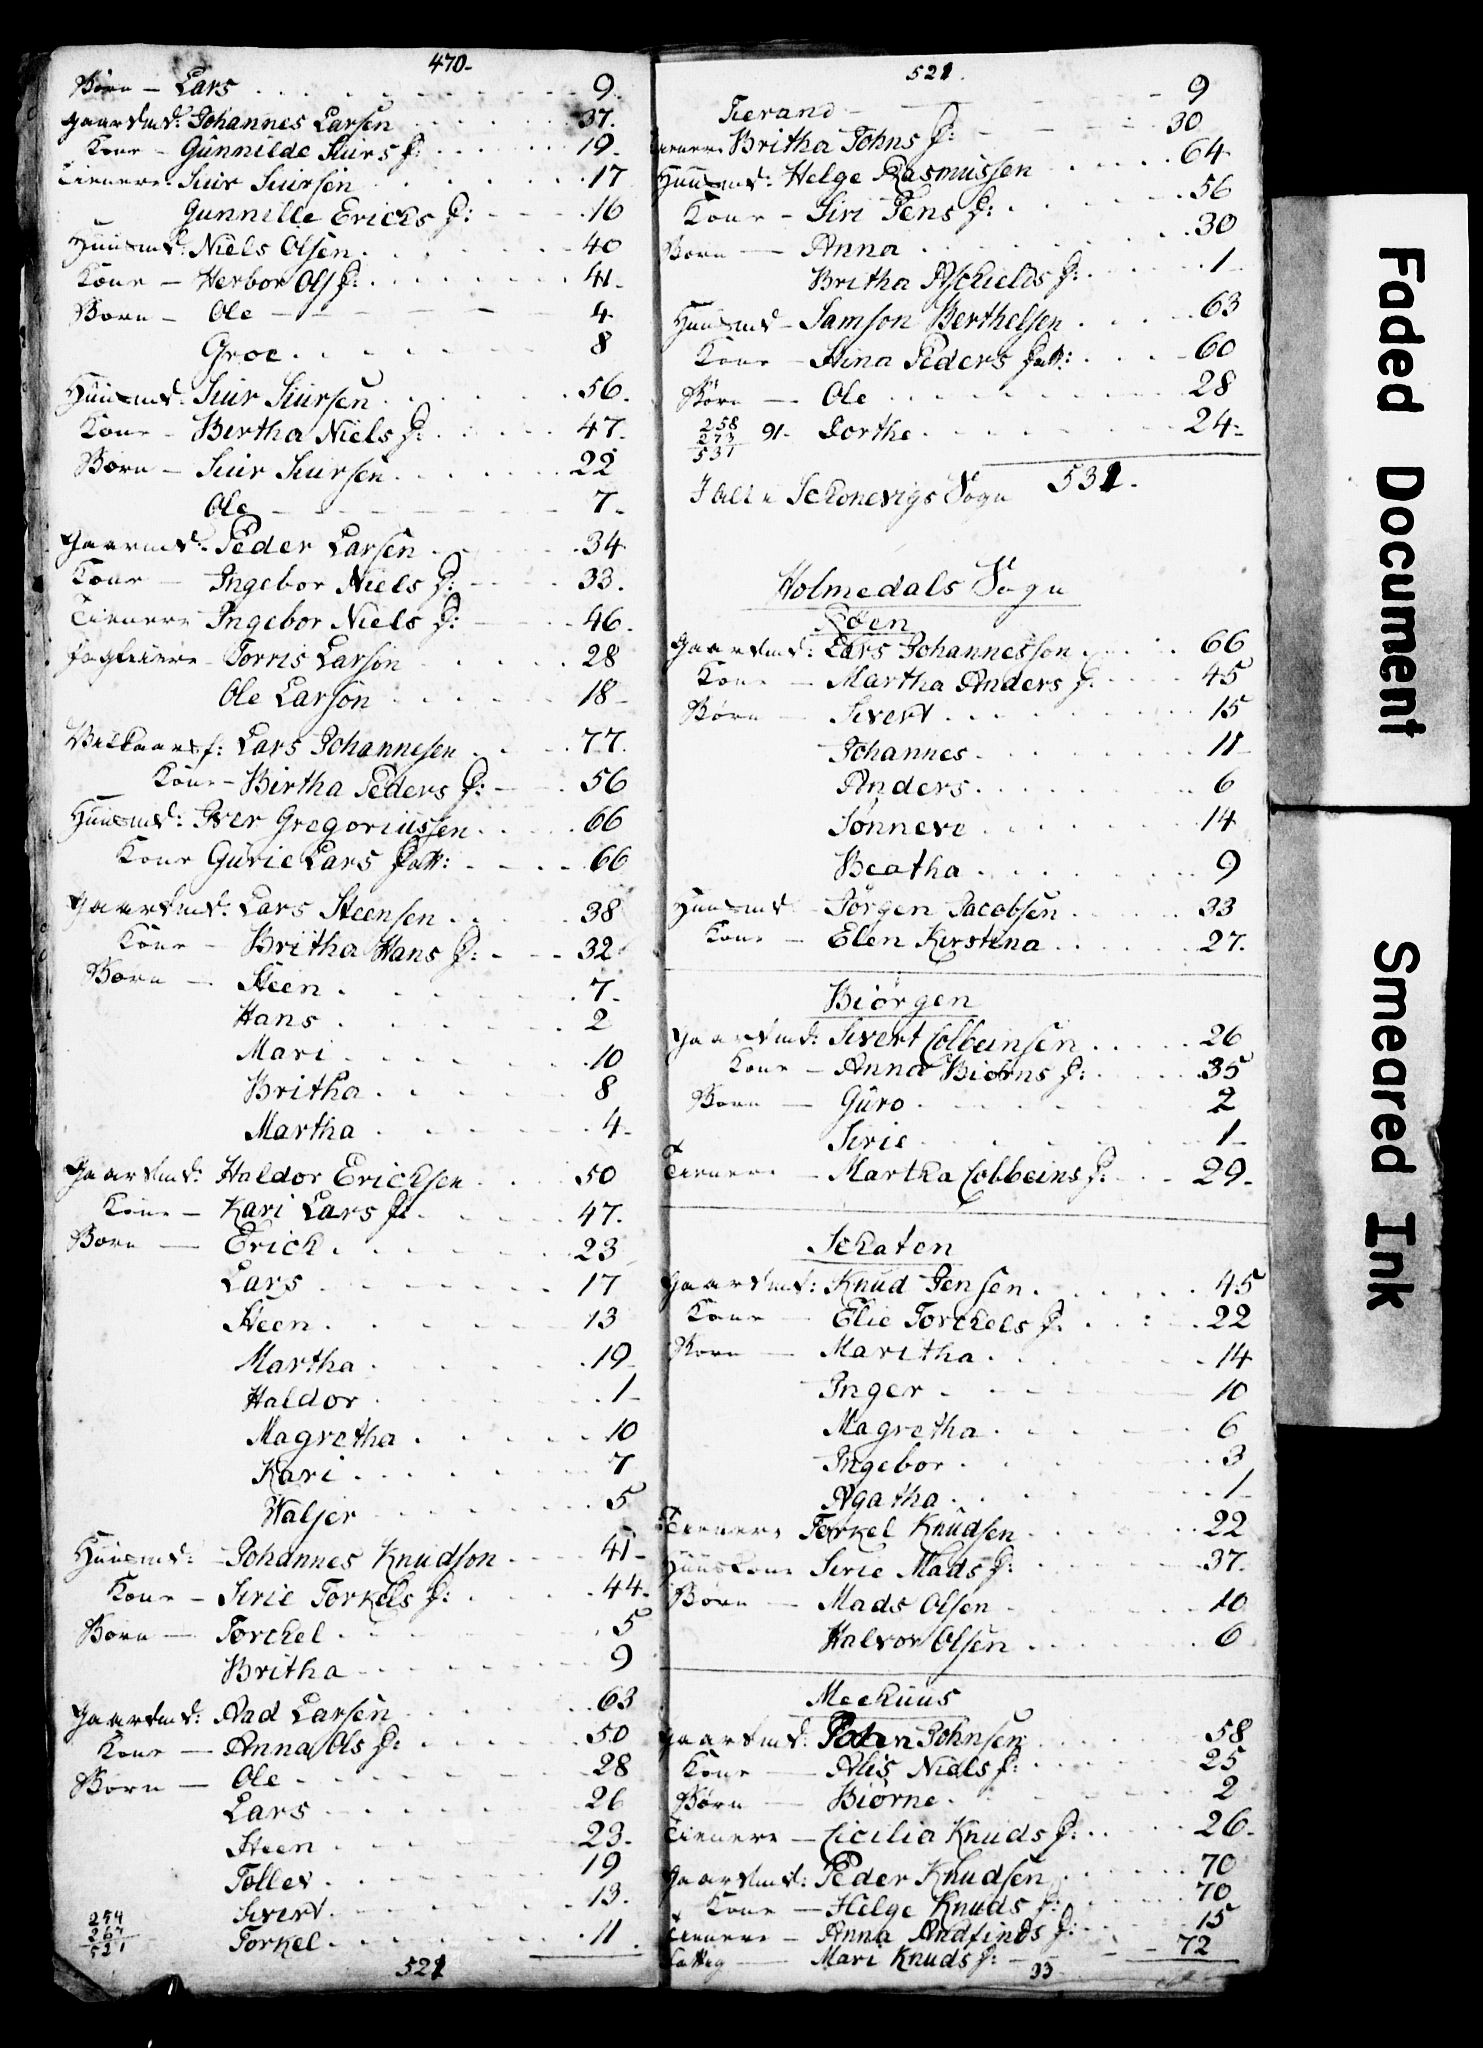 470-
Börn - Lars 9
gaardmd: Johannes Larsen 37.
Kone - Gunnilde Siurs f: 19
Tienere Siur Siursen 17
Gunnille Ericks D: 16
Huusmd: Niels Olsen 40
Kone - Herbor Ols f: 41
Børn - Ole 4
Groe 8
Huusmd: Siur Siursen 56.
Kone - Bertha Niels D: 47.
Børn - Siur Siursen 22
Ole 7
gaarmd: Peder Larsen 34
Kone - Ingebor Niels D: 33.
Tienere Ingebor Niels D: 46.
Torris Larsøn 28
Ole Larsøn 18
Lars Johannesen 77.
Kone - Birtha Peders D: 56
Huusmd: Iver Gregoriussen 66
Kone Gurie Lars Datt: 66
gaardmd: Lars Steensen 38
Kone - Britha Hans D: 32
Børn - Steen 7
Hans 2
Mari 10
Britha 8
Martha 4
Gaardmd: Haldor Ericksen 50
Kone - Kari Lars f: 47.
Børn - Erick 23
Lars 17
Steen 13
Martha 19
Haldor 1
Magretha 10
Kari 7
Waljer 5
Huusmd: Johannes Knudson 41
Kone - Sirie Torkels D: 44
Børn - Torckel 5
Britha 9
Gaardmd: Aad Larsen 63
Kone - Anna Ols D: 50
Børn - Ole 28
Lars 26
Steen 23
Tollev 19
Sivert 13
Torkel 11
254
267
521
521
521
Tierand 9
Tienere Britha Johns D: 30
Huusmd: Helge Rasmussen 64
Kone - Siri Jens D: 56
Børn - Anna 30
Britha Aschields D: 1
Huusmd - Samson Berthelsen 63
Kone - Stina Peders Datt: 60
Børn - Ole 28
Dorthe 24
258
273
531
91-
I alt i Schonevigs Sogn 531.
Holmedals Sogn
Røen
gaardmd: Lars Johannesson 66
Kone - Martha Anders f: 45
Børn - Sivert 15
Johannes 11
Anders 6
Sønneve 14
Beatha 9
Huusmd Jörgen Jacobsen 33
Kone - Elen Kirstina 27.
Biörgen
gaardmd: Sivert Colbeinsen 26
Kone - Anna Biörns D: 35
Børn - Guro 2
Sirie 1
Tienere - Martha Colbeins D: 29
Schaten
Gaardmd: Knud Jensen 45
Kone - Elie Torckels D: 22
Børn - Maritha 14
Inger 10
Magretha 6
Ingebor 3
Agatha 1
Tienere Torkel Knudsen 22
Huuskone Sirie Mads D: 37.
Børn - Mads Olsen 10
Halvor Olsen 6
Meehuus
gaardmd: Johnsen 58
Kone - Alis Niels f: 25
Børn - Biörne 2
Tienere - Cicilia Knuds D: 26
gaardmd: Peder Knudsen 70
Kone - Helge Knuds D: 70
Tienere - Anna Andfinds D: 15
Fattig - Mari Knuds D: 72
33
Faded Document
Smeared Ink